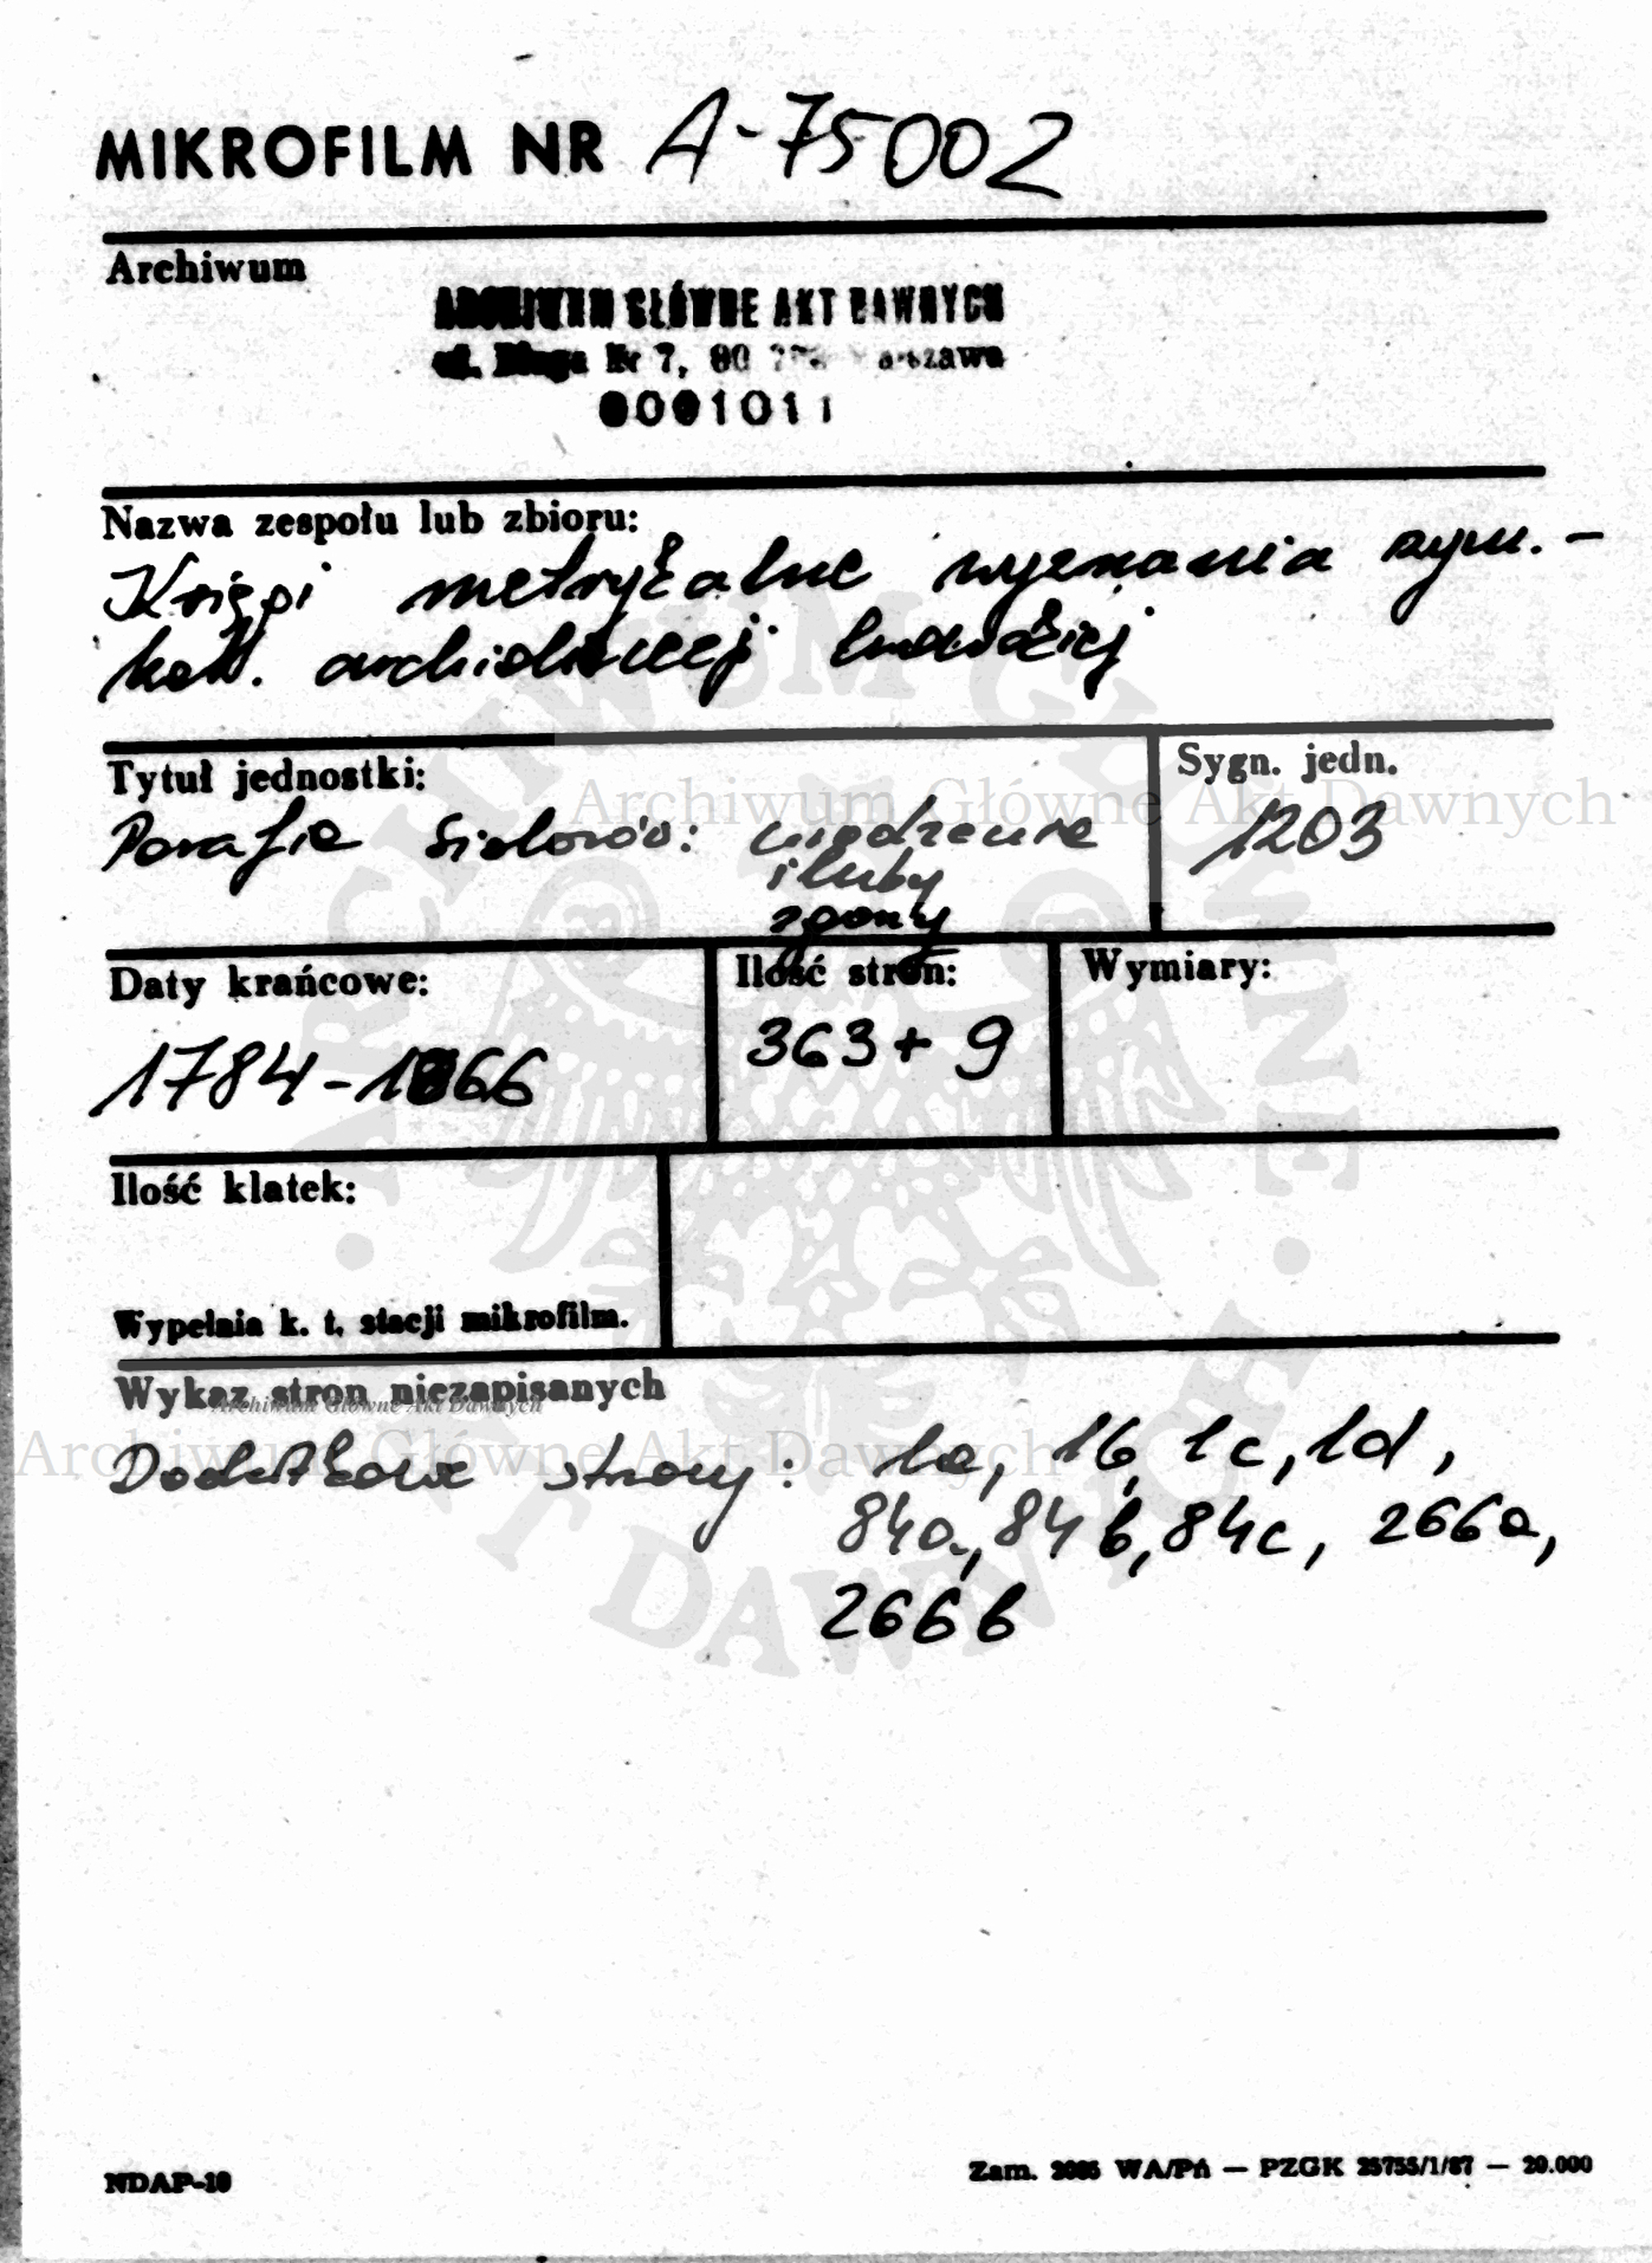 MIKROFILM NR A-75002
Archiwum
ARCHIWUM GŁÓWNE AKT DAWNYCH
ul. Długa Nr 7, 00 Warszawa
0001011
Nazwa zespołu lub zbioru:
Księgi metrykalne wyznania rzym.-
kat. archidiecezji lwowskiej
Tytuł jednostki:
Sygn. jedn.
Archiwum Główne Akt Dawnych
Parafia Sidorów: urodzenia
1203
śluby
zgony
Daty krańcowe:
Ilość stron:
Wymiary:
1784-1866
363+9
Ilość klatek:
Wypełnia k. t. stacji mikrofilm.
Wykaz stron niezapisanych
Archiwum Główne Akt Dawnych
Archiwum Główne Akt Dawnych
Dodatkowe strony: 1a, 1b, 1c, 1d,
84a, 84b, 84c, 266a,
266b
ARCHIWUM GŁÓWNE
AKT DAWNYCH
NDAP-10
Zam. WA/Pń — PZGK 25755/1/87 — 20.000